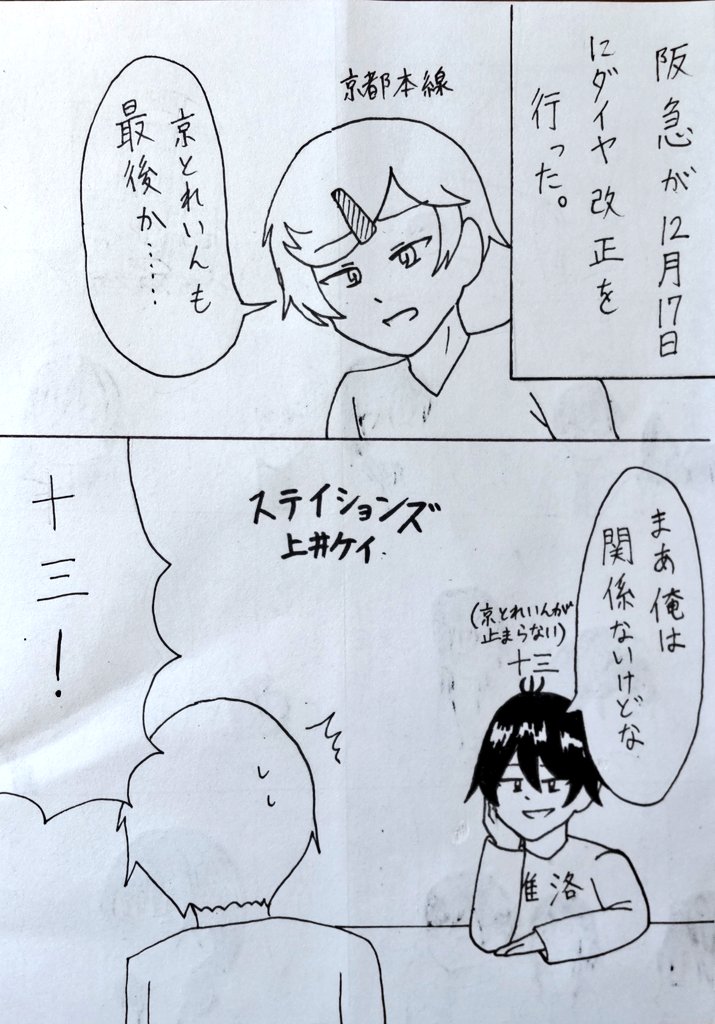 阪急が12月17日
にダイヤ改正を
行った。
京都本線
京とれいんも
最後か……
まあ俺は
関係ないけどな
ステイションズ
上井ケイ
(京とれいんが
止まらない)
十三
准洛
十三!